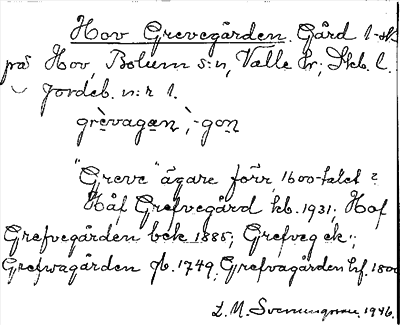 Hov Grevegården. Gård 1-sk
på Hov, Bolum s:n, Valle hr, Skb. l.
Jordeb. n:r 1.
grèvagan, -gon
"Greve" ägare förr, 1600-talet?
Håf Grefvegård kb. 1931; Hof
Grefvegården bek 1885; Grefveg ek.;
Grefwagården gb. 1749; Grefvagården hf. 1800
L. M. Svenungsson. 1946.